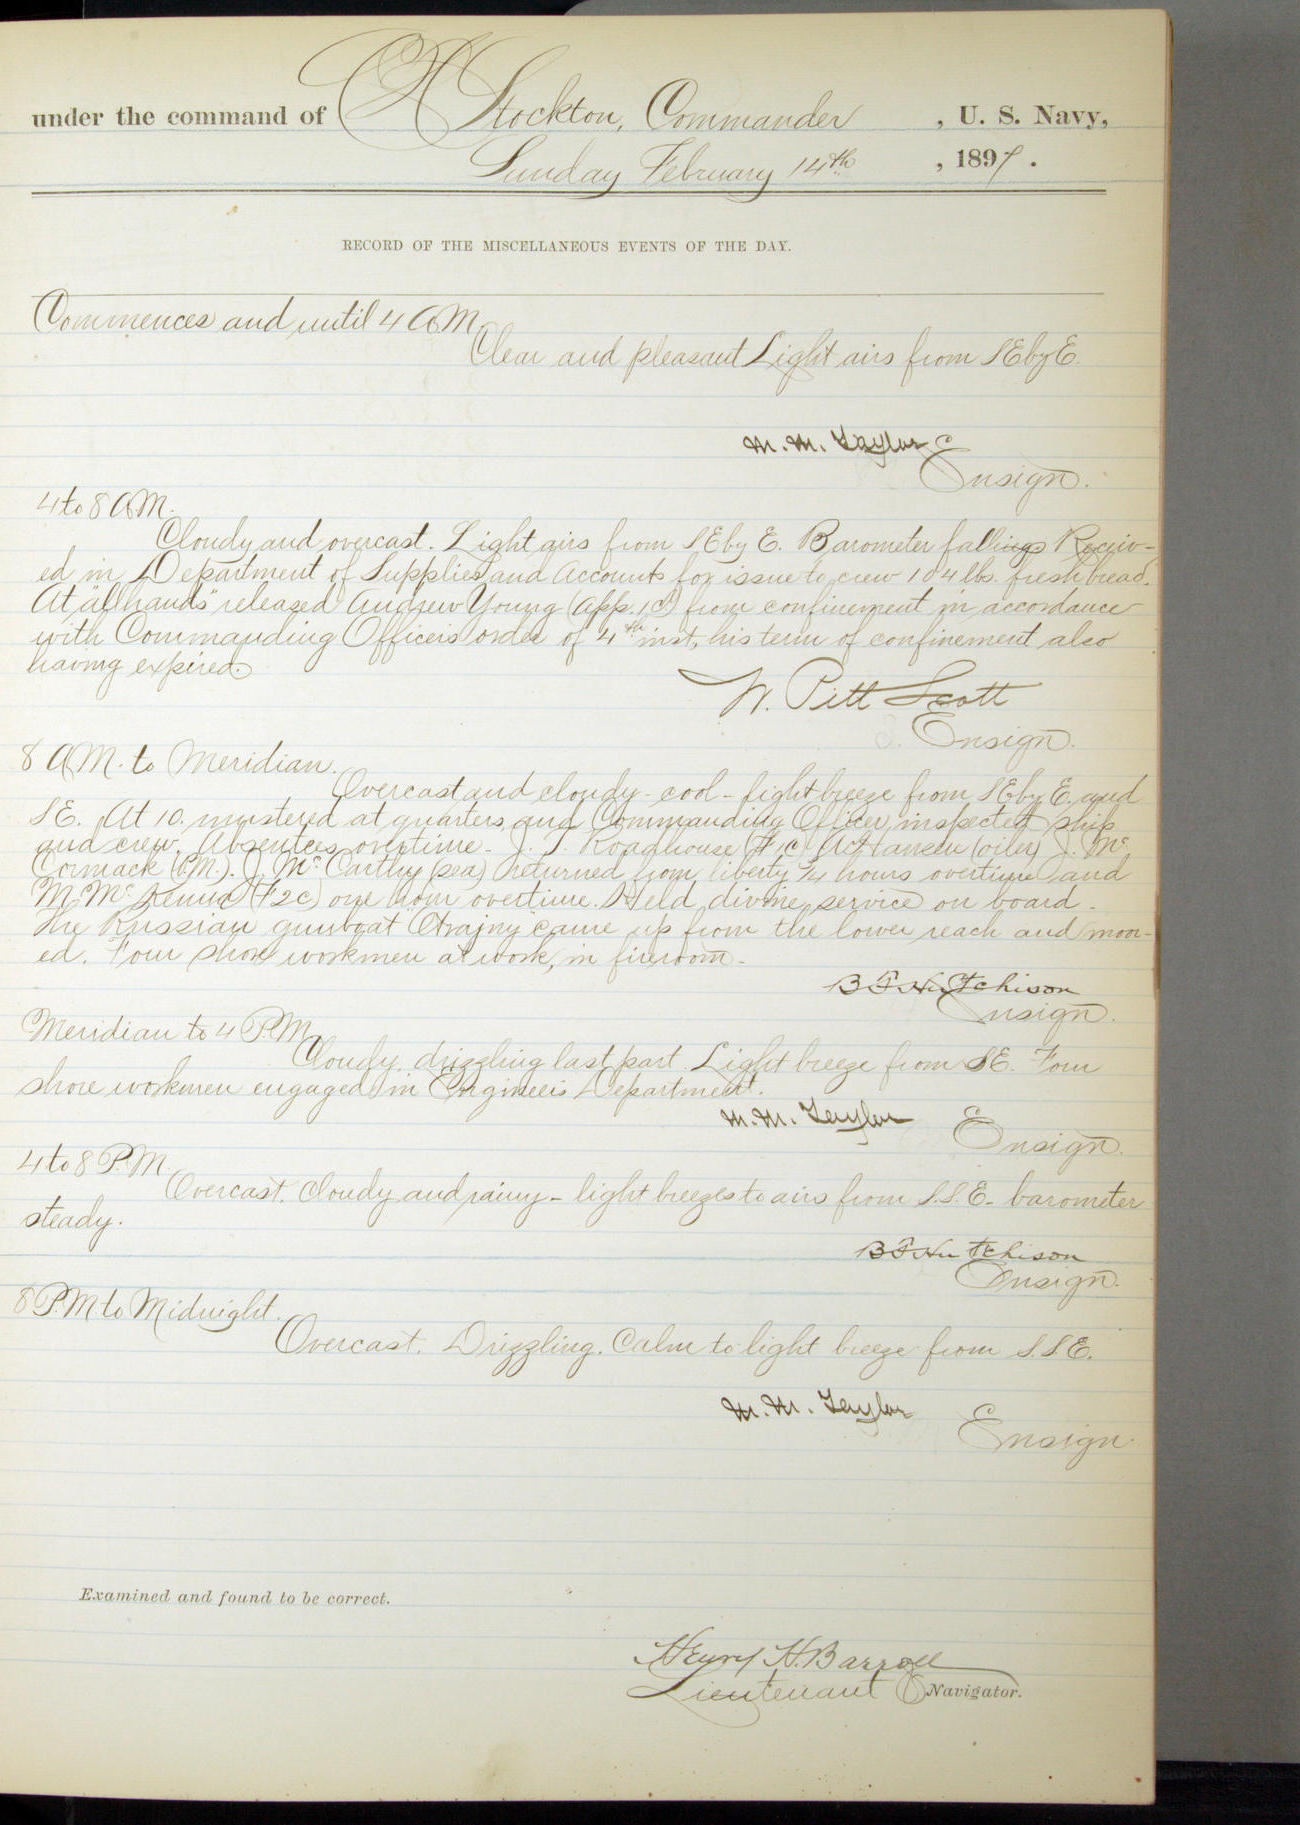 under the command of C H Stockton, Commander, U. S. Navy,
Sunday February 14th, 1897.
RECORD OF THE MISCELLANEOUS EVENTS OF THE DAY.
Commences and until 4 A.M.
Clear and pleasant Light airs from SE by E.
M. M. Taylor
Ensign.
4 to 8 A.M.
Cloudy and overcast. Light airs from SE by E. Barometer falling Receiv-
ed in Department of Supplies and Accounts for issue to crew 104 lbs. fresh bread.
At "all hands" released Andrew Young (App. 1c) from confinement in accordance
with Commanding Officer's order of 4th inst, his term of confinement also
having expired.
W. Pitt Scott
Ensign.
8 A.M. to Meridian.
Overcast and cloudy - cool - light breeze from SE by E. and
SE. At 10. mustered at quarters and Commanding Officer inspected ship
and crew. Absentees overtime - J. T. Roadhouse (F1c) Hansen (oiler) J. Mc
Cormack (B.M.). J. McCarthy (sea) returned from liberty 1/4 hours overtime and
M. Mc (F2c) one hour overtime. Held divine service on board -
The Russian gunboat "Otvajny" came up from the lower reach and moor-
ed. Four shore workmen at work, in fireroom -
B F Hutchison
Ensign.
Meridian to 4 P.M.
Cloudy, drizzling last part. Light breeze from SE. Four
shore workmen engaged in Engineer's Department.
M. M. Taylor
Ensign.
4 to 8 P.M.
Overcast. Cloudy and rainy - light breezes to airs from S.S.E. - barometer
steady.
B F Hutchison
Ensign.
8 P.M. to Midnight.
Overcast. Drizzling. Calm to light breeze from S.S.E.
M. M. Taylor
Ensign
Examined and found to be correct.
Henry H. Barroll
Lieutenant Navigator.